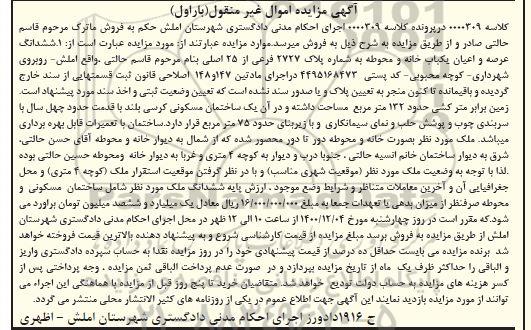 آگهی مزایده اموال غیر منقول(بازاول)
کلاسه ۰۰۰۰۳۰۹ درپرونده کلاسه ۰۰۰۰۳۰۹ اجرای احکام مدنی دادگستری شهرستان املش حکم به فروش ماترک مرحوم قاسم
حالتی صادر و از طریق مزایده به شرح ذیل به فروش میرسد.موارد مزایده عبارتند از: مورد مزایده عبارت است از: ۱.ششدانگ
عرصه و اعیان یکباب خانه و محوطه به شماره پلاک ۲۷۲۷ فرعی از ۲۵ اصلی بنام مرحوم قاسم حالتی .واقع املش- روبروی
شهرداری- کوچه محبوبی- کد پستی ۴۴۹۵۱۶۸۴۷۳ دراجرای مادتین ۱۴۷و۱۴۸ اصلاحی قانون ثبت قسمتهایی از سند خارج
گردیده و باقیمانده تا کنون منجر به تعیین پلاک و یا صدور سند نشده است که تعیین وضعیت ثبتی و اخذ سند مورد پیشنهاد است.
زمین برابر متر کشی حدود ۱۳۲ متر مربع مساحت داشته و در آن یک ساختمان مسکونی کرسی بلند با قدمت حدود چهل سال با
سربندی چوب و پوشش حلب و نمای سیمانکاری و با زیربنای حدود ۷۵ متر مربع قرار دارد.ساختمان با تعمیرات قابل بهره برداری
میباشد. ملک مورد نظر بصورت خانه و محوطه دور تا دور محصور شده که از شمال به دیوار خانه و محوطه آقای حسن حالتی.
شرق به دیوار ساختمان خانم انسیه حالتی . جنوبا درب و دیوار به کوچه ۴ متری و غربا به دیوار خانه ومحوطه حسین حالتی بوده
.لذا با توجه به وضعیت ملک مورد نظر (موقعیت شهری مناسب) و با در نظر گرفتن موقعیت استقرار ملک (کوچه ۴ متری) و محل
جغرافیایی آن و آخرین معاملات متناظر و شرایط وضع موجود . ارزش پایه ششدانگ ملک مورد نظر شامل ساختمان مسکونی و
محوطه صرفنظر از میزان بدهی یا تعهدات جمعا به مبلغ ۱۶/۰۰۰/۰۰۰/۰۰۰ ریال معادل یک میلیارد و ششصد میلیون تومان برآورد می
شود.که مقرر است در روز چهارشنبه مورخ ۱۴۰۰/۱۲/۰۴ از ساعت ۱۰ الی ۱۲ ظهر در محل اجرای احکام مدنی دادگستری شهرستان
املش از طریق مزایده به فروش برسد مبلغ مزایده از قیمت کارشناسی شروع و به پیشنهاد دهنده بالاترین قیمت فروخته خواهد
شد برنده مزایده می بایست حداقل ده درصد از قیمت پیشنهادی خود را در روز مزایده نقدا به حساب سپرده دادگستری واریز
و الباقی را حداکثر ظرف یک ماه از تاریخ مزایده بپردازد و در صورت عدم پرداخت الباقی ثمن مزایده . وجه پرداختی پس از
کسر هزینه های مزایده به حساب دولت تودیع خواهد شد. متقاضیان خرید تا پنج روز قبل از مزایده با هماهنگی این اجراء می
توانند از مورد مزایده بازدید نمایند این آگهی جهت اطلاع عموم در یکی از روزنامه های کثیر الانتشار محلی منتشر می گردد.
ح ۱۹۱۶ دادورز اجرای احکام مدنی دادگستری شهرستان املش - اظهری